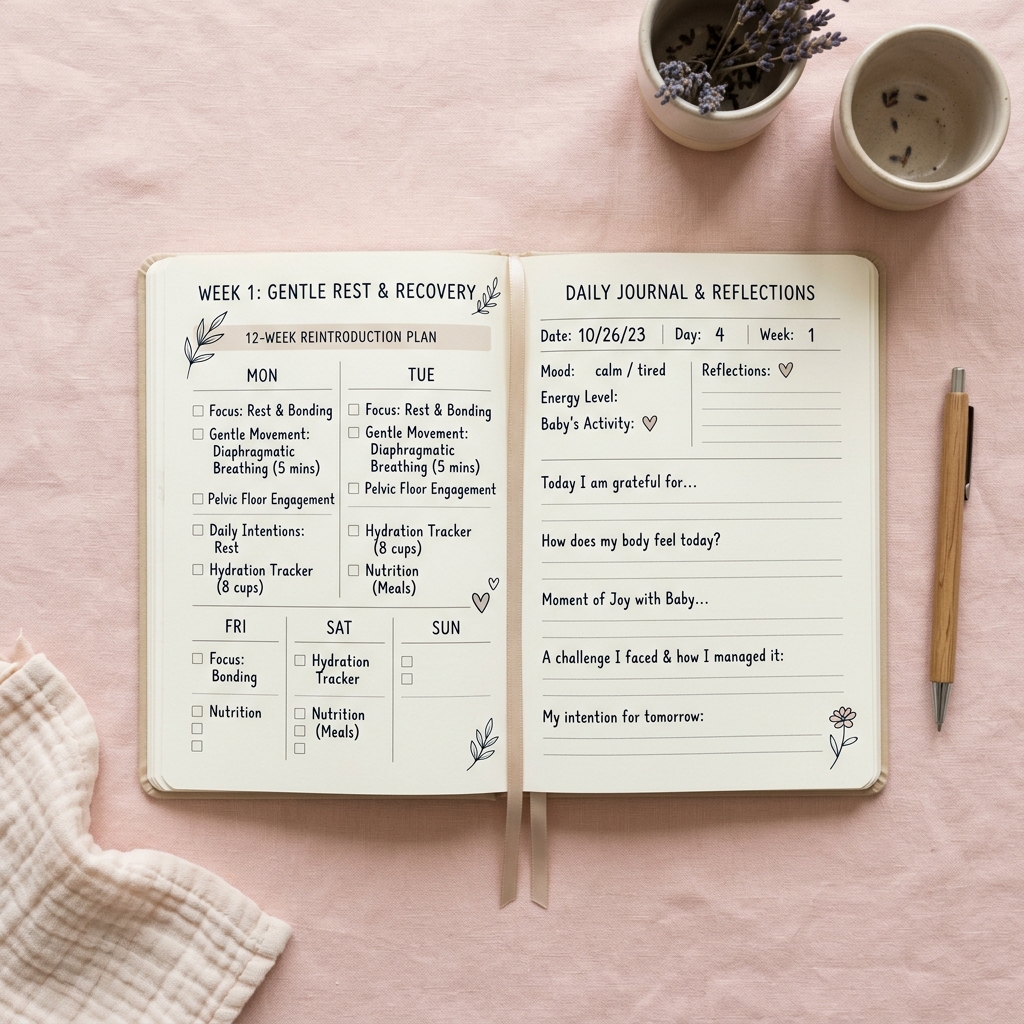 WEEK 1: GENTLE REST & RECOVERY
12-WEEK REINTRODUCTION PLAN
MON
Focus: Rest & Bonding
Gentle Movement:
Diaphragmatic
Breathing (5 mins)
Pelvic Floor Engagement
Daily Intentions:
Rest
Hydration Tracker
(8 cups)
TUE
Focus: Rest & Bonding
Gentle Movement:
Diaphragmatic
Breathing (5 mins)
Pelvic Floor Engagement
Hydration Tracker
(8 cups)
Nutrition
(Meals)
FRI
Focus:
Bonding
Nutrition
SAT
Hydration
Tracker
Nutrition
(Meals)
SUN
DAILY JOURNAL & REFLECTIONS
Date: 10/26/23 Day: 4 Week: 1
Mood: calm / tired
Energy Level:
Baby's Activity:
Reflections:
Today I am grateful for...
How does my body feel today?
Moment of Joy with Baby...
A challenge I faced & how I managed it:
My intention for tomorrow: